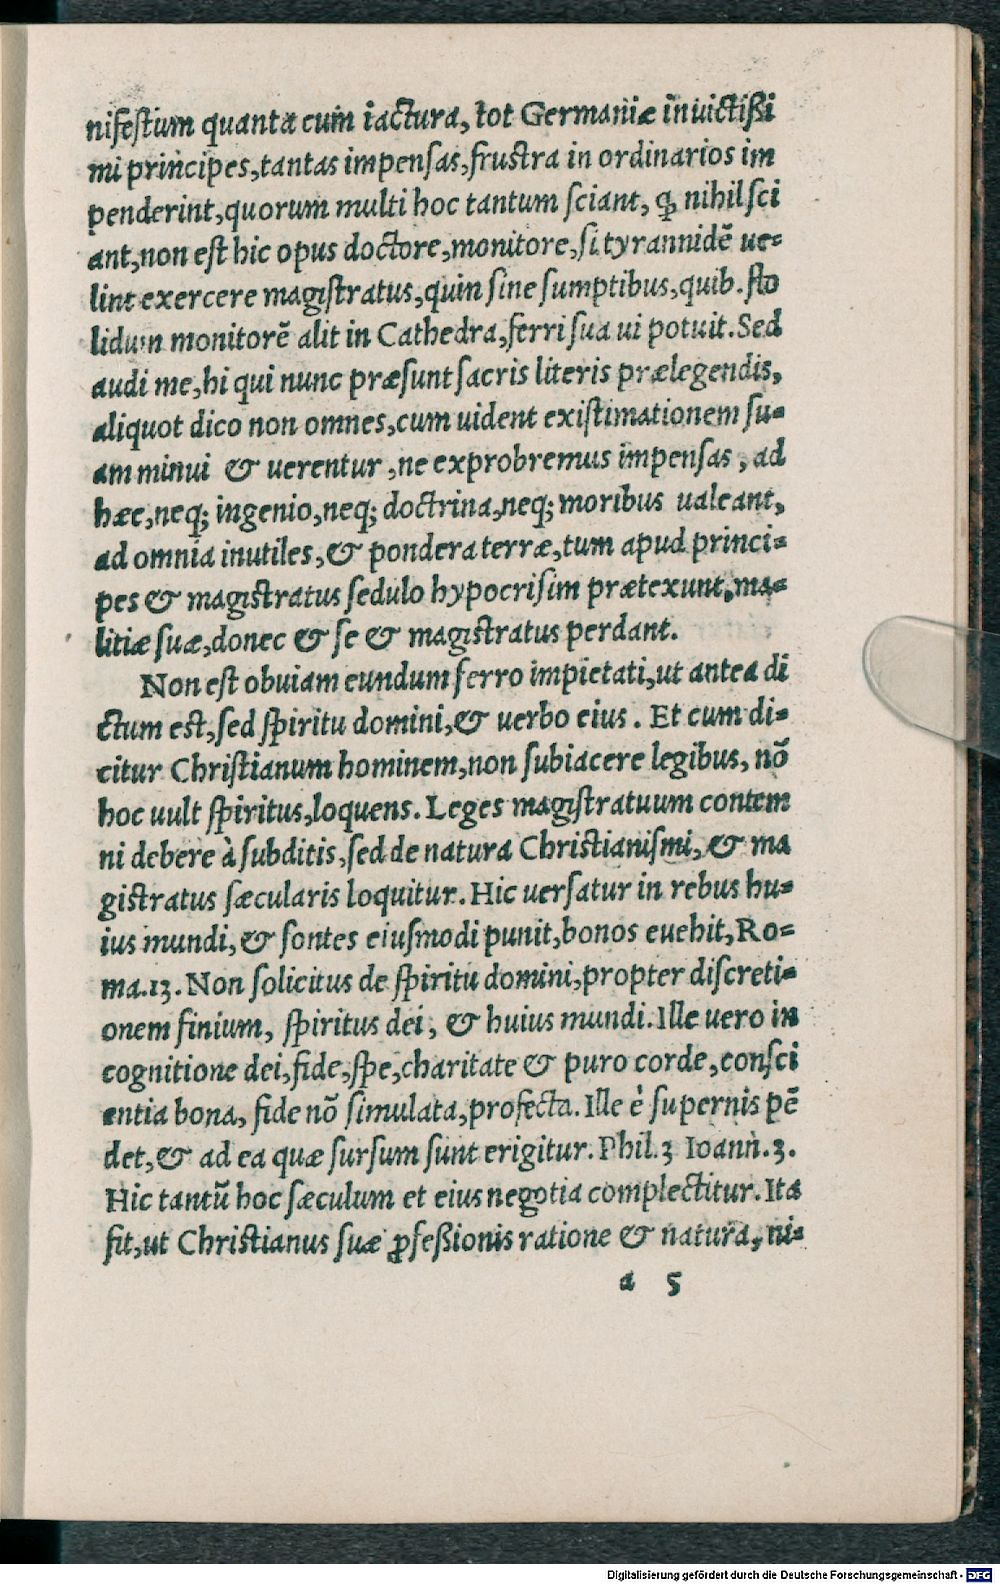 nifestium quanta cum iactura, tot Germaniæ inuictißi
mi principes, tantas impensas, frustra in ordinarios im
penderint, quorum multi hoc tantum sciant, ꝙ nihil sci
ant, non est hic opus doctore, monitore, si tyrannidē ue-
lint exercere magistratus, quin sine sumptibus, quib. sto
lidum monitorē alit in Cathedra, ferri sua ui potuit. Sed
audi me, hi qui nunc præsunt sacris literis prælegendis,
aliquot dico non omnes, cum uident existimationem su-
am minui & uerentur, ne exprobremus impensas, ad
hæc, neq; ingenio, neq; doctrina, neq; moribus ualeant,
ad omnia inutiles, & pondera terræ, tum apud princi-
pes & magistratus sedulo hypocrisim prætexunt, ma-
litiæ suæ, donec & se & magistratus perdant.
Non est obuiam eundum ferro impietati, ut antea di
ctum est, sed spiritu domini, & uerbo eius. Et cum di-
citur Christianum hominem, non subiacere legibus, nō
hoc uult spiritus, loquens. Leges magistratuum contem
ni debere à subditis, sed de natura Christianismi, & ma
gistratus sæcularis loquitur. Hic uersatur in rebus hu-
ius mundi, & sontes eiusmodi punit, bonos euehit, Ro-
ma. 13. Non solicitus de spiritu domini, propter discreti-
onem finium, spiritus dei, & huius mundi. Ille uero in
cognitione dei, fide, spe, charitate & puro corde, consci
entia bona, fide nō simulata, profecta. Ille è supernis pē
det, & ad ea quæ sursum sunt erigitur. Phil. 3 Ioann. 3.
Hic tantū hoc sæculum et eius negotia complectitur. Ita
fit, ut Christianus suæ ꝓfeßionis ratione & natura, ni-
a 5
Digitalisierung gefördert durch die Deutsche Forschungsgemeinschaft - DFG